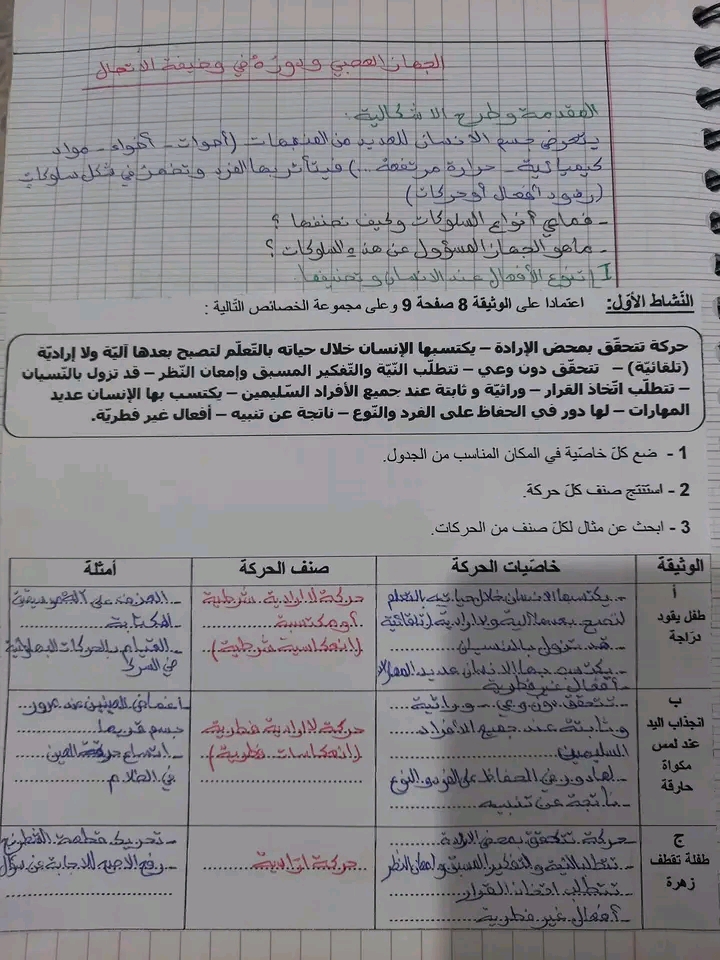 الجهاز العصبي ودوره في وظيفة الاتصال
المقدمة وطرح الاشكالية:
يتعرض جسم الانسان للعديد من المنبهات (أصوات - أضواء - مواد
كيميائية - حرارة مرتفعة ...) فيتأثر بها الفرد وتظهر في شكل سلوكات
(ردود أفعال أو حركات)
- فماهي أنواع السلوكات وكيف نصنفها ؟
- ماهو الجهاز المسؤول عن هذه السلوكات ؟
I تنوع الأفعال عند الانسان وتصنيفها.
النّشاط الأوّل: اعتمادا على الوثيقة 8 صفحة 9 وعلى مجموعة الخصائص التّالية :
حركة تتحقّق بمحض الإرادة – يكتسبها الإنسان خلال حياته بالتّعلّم لتصبح بعدها آليّة ولا إراديّة
(تلقائيّة) – تتحقّق دون وعي – تتطلّب النّيّة والتّفكير المسبق وإمعان النّظر – قد تزول بالنّسيان
– تتطلّب اتّخاذ القرار – وراثيّة و ثابتة عند جميع الأفراد السّليمين – يكتسب بها الإنسان عديد
المهارات – لها دور في الحفاظ على الفرد والنّوع – ناتجة عن تنبيه – أفعال غير فطريّة.
1 - ضع كلّ خاصّية في المكان المناسب من الجدول.
2 - استنتج صنف كلّ حركة.
3 - ابحث عن مثال لكلّ صنف من الحركات.
الوثيقة خاصّيات الحركة صنف الحركة أمثلة
أ
طفل يقود
درّاجة
- يكتسبها الانسان خلال حياته بالتعلم
لتصبح بعدها آلية ولا ارادية (تلقائية)
- قد تزول بالنسيان
- يكتسب بها الانسان عديد المهارات
- أفعال غير فطرية
حركة لاارادية شرطية
أو مكتسبة
(انعكاسية شرطية)
- العزف على آلة موسيقية
- الكتابة
- القيام بالحركات البهلوانية
في السرك
ب
انجذاب اليد
عند لمس
مكواة
حارقة
- تتحقق دون وعي - وراثية
وثابتة عند جميع الأفراد
السليمين
- لها دور في الحفاظ على الفرد والنوع
- ناتجة عن تنبيه
حركة لاارادية فطرية
(انعكاسات فطرية)
- اغماض العينين عند مرور
جسم قربها
- اتساع حدقة العين
في الظلام
ج
طفلة تقطف
زهرة
- حركة تتحقق بمحض الارادة
- تتطلب النية والتفكير المسبق وامعان النظر
- تتطلب اتخاذ القرار
- أفعال غير فطرية
حركة ارادية
- تحريك قطعة الشطرنج
- رفع الاصبع للاجابة عن سؤال